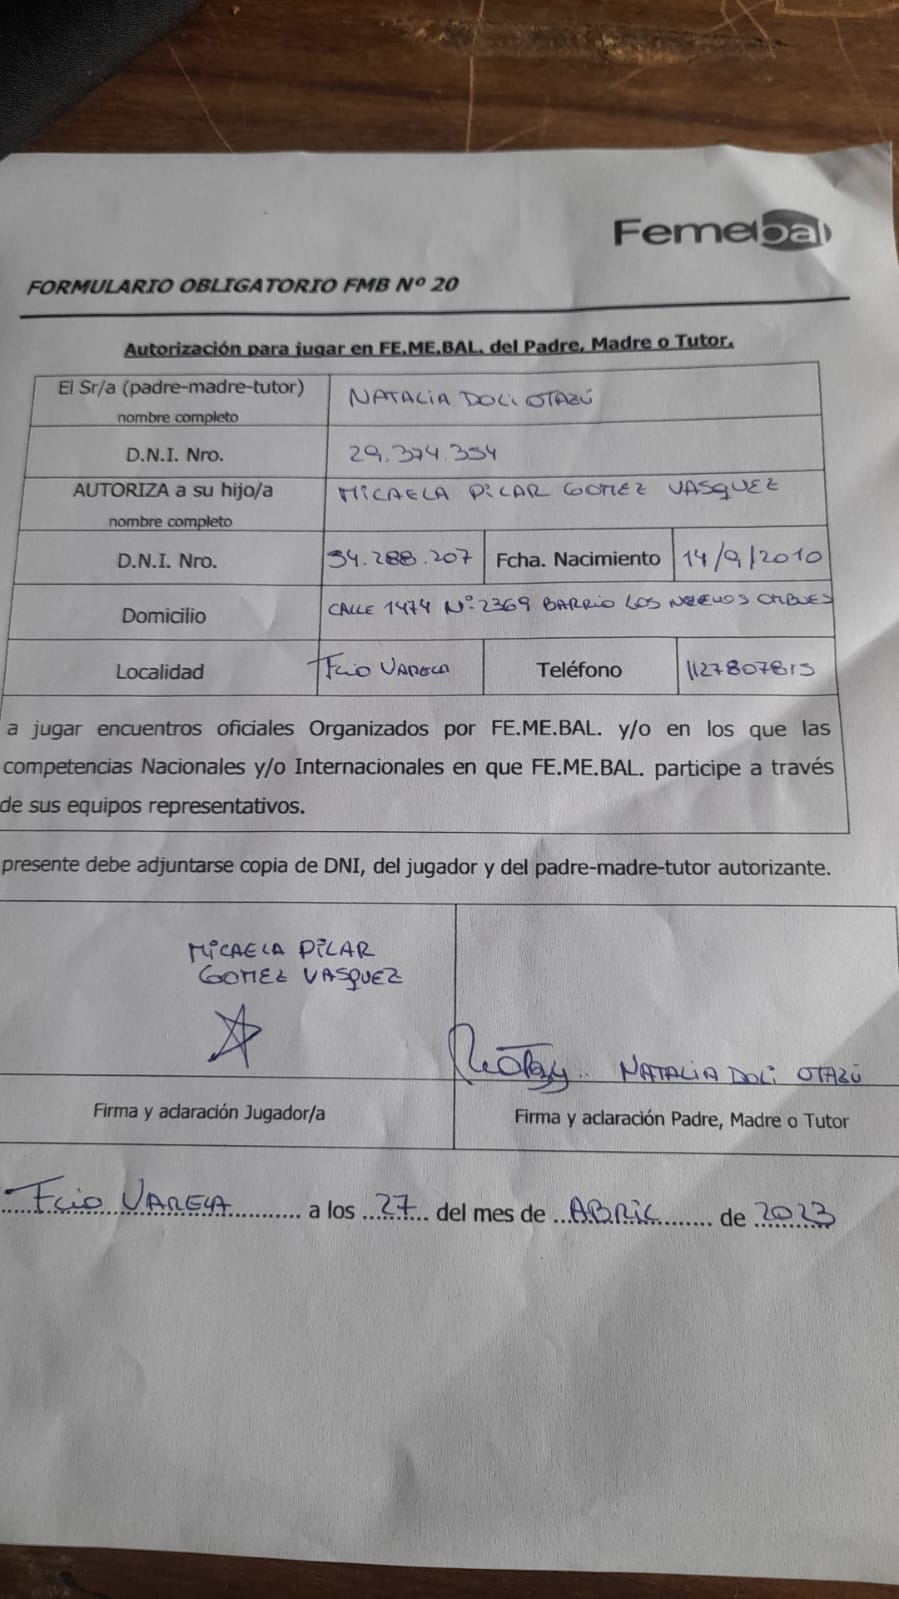 Femebal
FORMULARIO OBLIGATORIO FMB Nº 20
Autorización para jugar en FE.ME.BAL. del Padre, Madre o Tutor.
El Sr/a (padre-madre-tutor) NATALIA DOLI OTAZÚ
nombre completo
D.N.I. Nro. 29.374.354
AUTORIZA a su hijo/a MICAELA PILAR GOMEZ VASQUEZ
nombre completo
D.N.I. Nro. 54.288.207 Fcha. Nacimiento 14/9/2010
Domicilio CALLE 1474 Nº 2369 BARRIO LOS NUEVOS OMBUES
Localidad Fcio VARELA Teléfono 1127807815
a jugar encuentros oficiales Organizados por FE.ME.BAL. y/o en los que las
competencias Nacionales y/o Internacionales en que FE.ME.BAL. participe a través
de sus equipos representativos.
presente debe adjuntarse copia de DNI, del jugador y del padre-madre-tutor autorizante.
MICAELA PILAR
GOMEZ VASQUEZ
NATALIA DOLI OTAZÚ
Firma y aclaración Jugador/a Firma y aclaración Padre, Madre o Tutor
Fcio VARELA a los 27 del mes de ABRIL de 2023